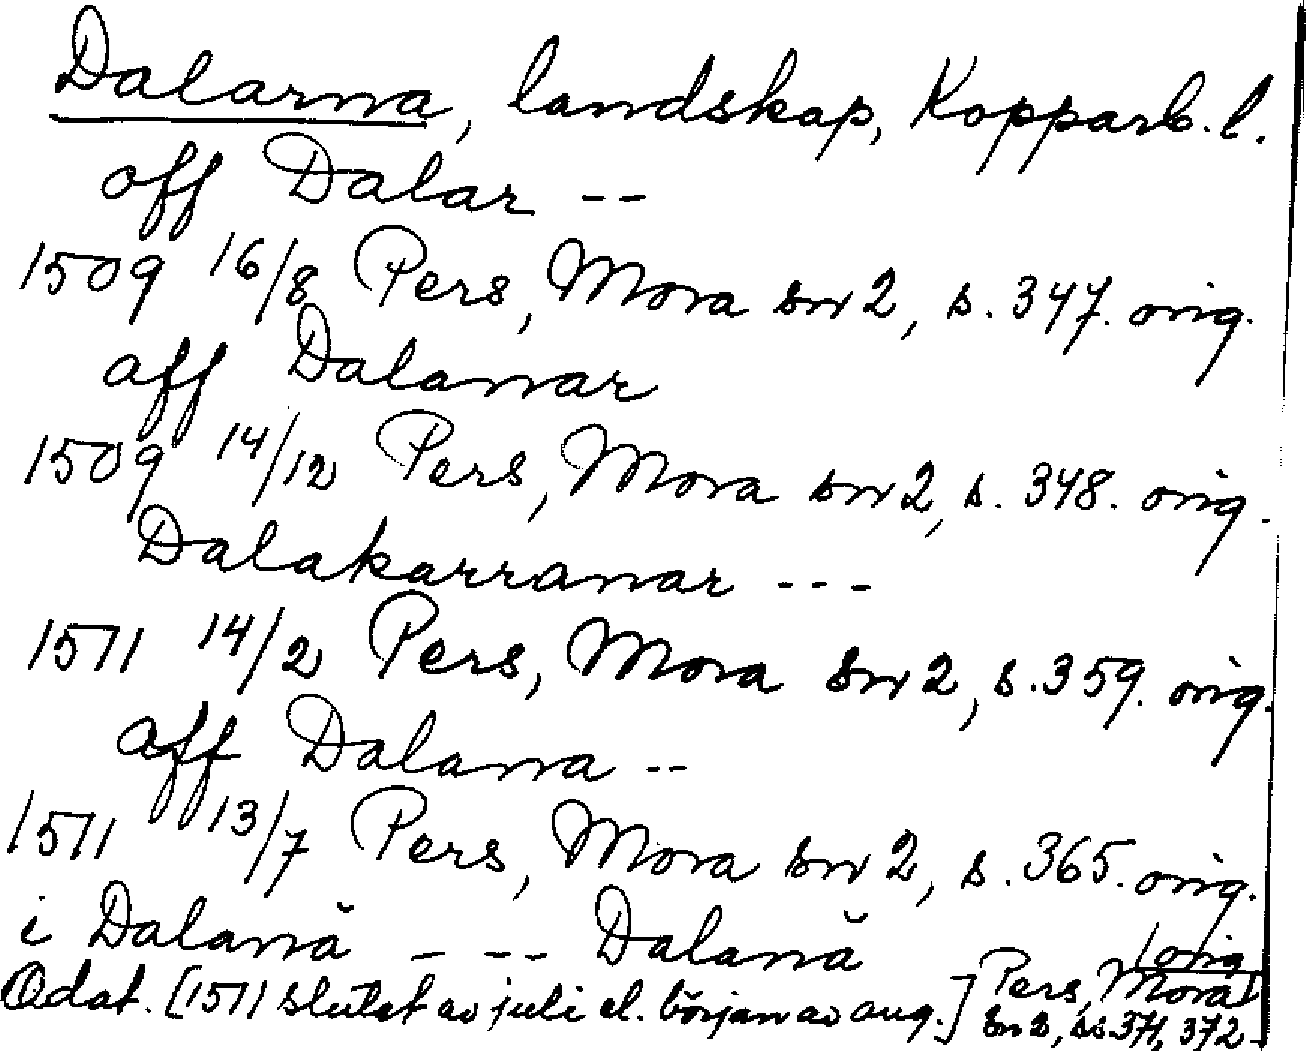 Dalarna, landskap, Kopparb. l.
off Dalar --
1509 16/8 Pers, Mora sn 2, s. 347. orig.
aff Dalarnar
1509 14/12 Pers, Mora sn 2, s. 348. orig.
Dalakarranar ---
1511 14/2 Pers, Mora sn 2, s. 359. orig.
aff Dalarna --
1511 13/7 Pers, Mora sn 2, s. 365. orig.
i Dalană --- Dalană orig
Odat. [1511 slutet av juli el. början av aug.] Pers, Mora
sn 2, ss. 371, 372